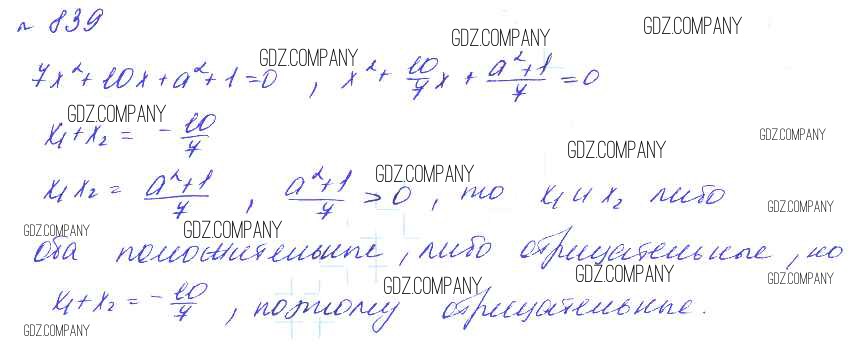 № 839
GDZ.COMPANY GDZ.COMPANY GDZ.COMPANY
7x²+10x+a²+1=0 , x²+10/7x+(a²+1)/7=0
GDZ.COMPANY GDZ.COMPANY
x₁+x₂ = -10/7
GDZ.COMPANY GDZ.COMPANY
x₁x₂ = (a²+1)/7 , (a²+1)/7 > 0 , то x₁ и x₂ либо
GDZ.COMPANY GDZ.COMPANY GDZ.COMPANY
оба положительные, либо отрицательные, но
GDZ.COMPANY GDZ.COMPANY GDZ.COMPANY
x₁+x₂ = -10/7 , поэтому отрицательные.
GDZ.COMPANY